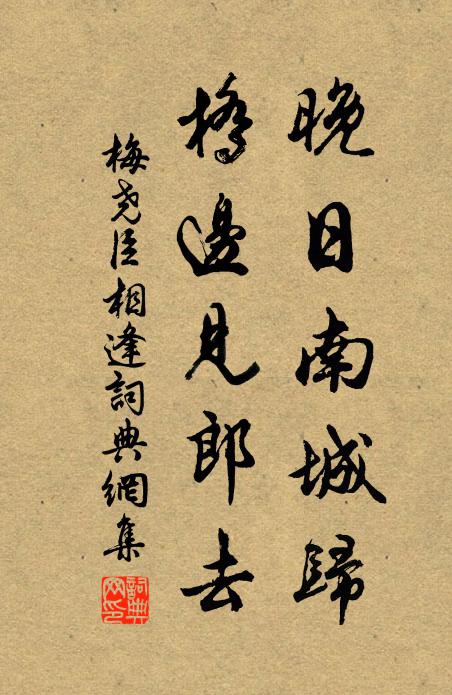 晚日南城歸
橋邊見郎去
梅尧臣相逢詞典網集
詞典網印